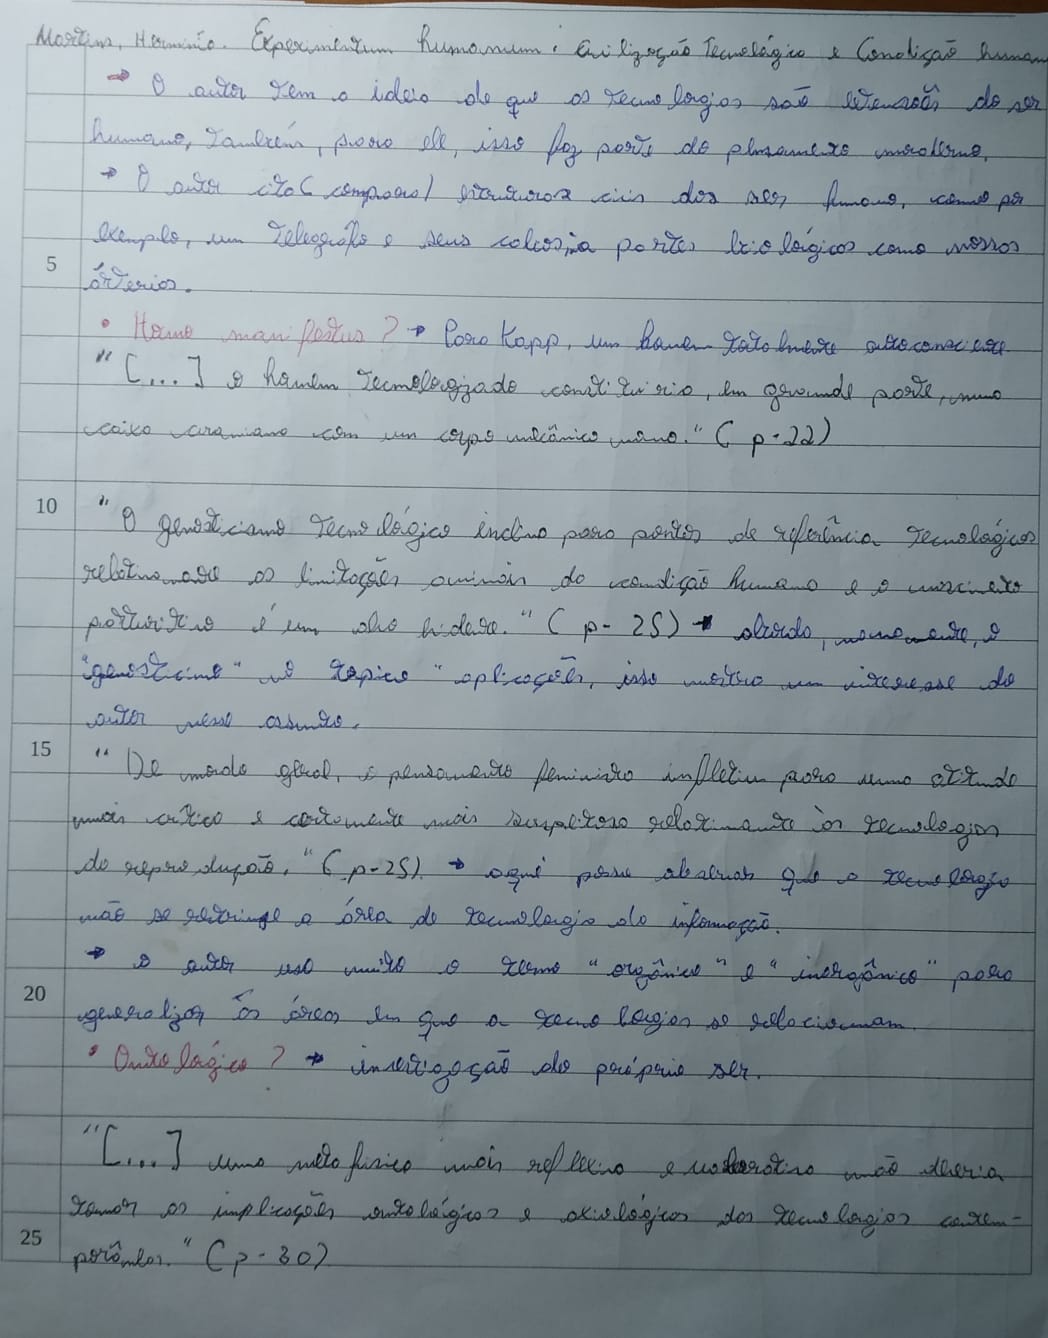 Martins, Hermínio. Experimentum humanum: Civilização Tecnológica e Condição human
→ O autor tem a ideia de que as tecnologias são extensões do ser
humano, também, para ele, isso faz parte do pensamento moderno.
→ O autor cita (compara) estruturas dos ser humano, como por
exemplo, um telegráfo e seus cabos, a partes biológicas como nossas
5
ártérias.
• Homo manifestus? → Para Kapp, um homem totalmente autoconsciente
"[...] o homem tecnologizado constituiria, em grande parte, numa
caixa craniana com um corpo mecânico mano." (p.22)
10
"O gnosticismo tecnológico inclina para pontos de referência tecnológicos
as limitações animais da condição humana e o nascimento
é um." (p-25) → aborda, novamente, o
"gnosticismo" no tópico "aplicações, isso mostra um interesse do
autor nesse assunto.
15
"De modo geral, o pensamento feminista infletiu para uma atitude
mais crítica e certamente mais suspeitosa relativamente às tecnologias
de reprodução." (p-25) → aqui posso observar que a tecnologia
não se restringe a área de tecnologia da informação.
→ o autor usa muito o termo "orgânico" e "inorgânico" para
20
generalizar ás áreas em que a tecnologias se relacionam.
• Ontológico? → investigação do próprio ser.
"[...] uma metafísica mais reflexiva e moderativa não deveria
tomar as implicações ontológicas e axiológicas das tecnologias contem-
25
porâneas." (p-30)